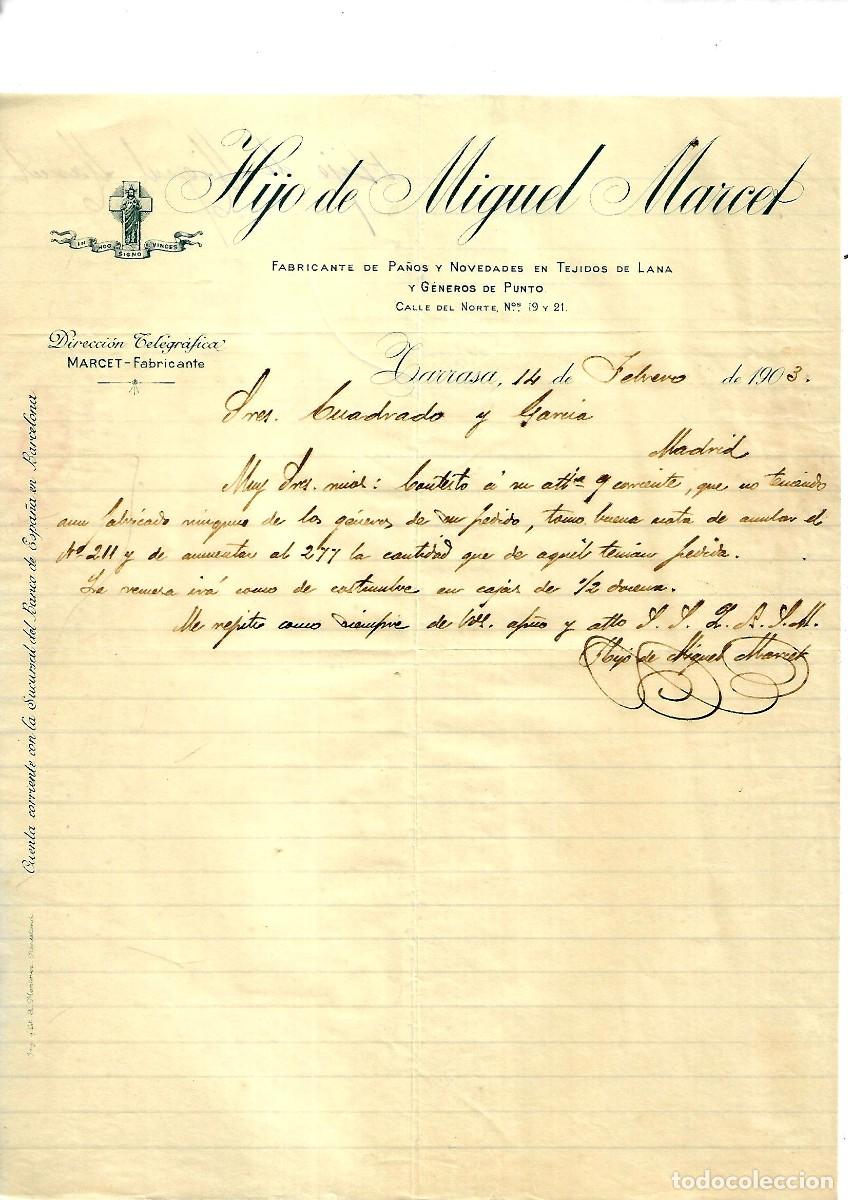 Hijo de Miguel Marcet
IN HOC SIGNO VINCES
FABRICANTE DE PAÑOS Y NOVEDADES EN TEJIDOS DE LANA
Y GÉNEROS DE PUNTO
CALLE DEL NORTE, Nos. 19 Y 21.
Dirección Telegráfica
MARCET-Fabricante
Tarrasa, 14 de Febrero de 1903.
Sres. Cuadrado y Garcia
Madrid
Muy Sres. mios: Contesto á su atta 9 corriente, que no teniendo
aun fabricado ninguno de los géneros de su pedido, tomo buena nota de anular el
Nº 211 y de aumentar al 277 la cantidad que de aquél tenian pedida.
La remesa irá como de costumbre en cajas de 1/2 docena.
Me repito como siempre de Vds. afmo y atto S. S. Q. B. S. M.
Hijo de Miguel Marcet
Cuenta corriente con la Sucursal del Banco de España en Barcelona
todocoleccion